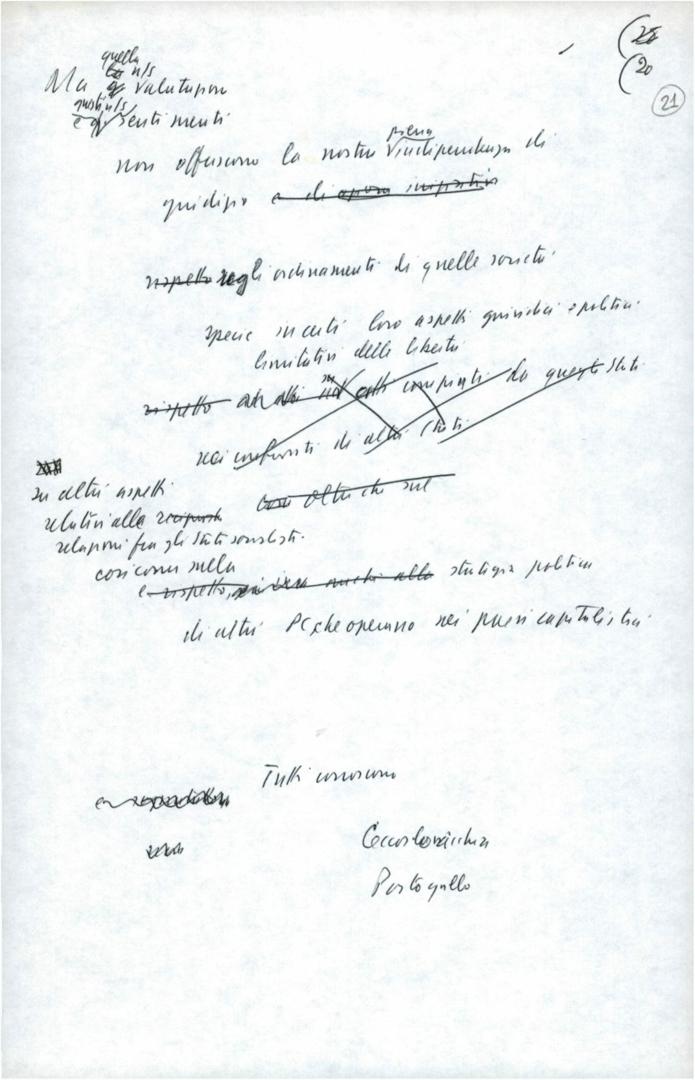 (22
(20
21
quella
n/s
Ma valutazion
questi n/s
e sentimenti
piena
non offuscano la nostra indipendenza di
giudizio e di
rispetto sugli ordinamenti di quelle società
specie in certi loro aspetti giuridici e politici
limitativi delle libertà
rispetto ad altri atti compiuti da questi Stati
nei confronti di altri Stati
su altri aspetti
relativi alle oltre che sul
relazioni fra gli Stati socialisti.
così come sulla
e rispetto, anche alla strategia politica
di altri PC che operano nei paesi capitalistici
Tutti conoscono
Cecoslovacchia
Portogallo